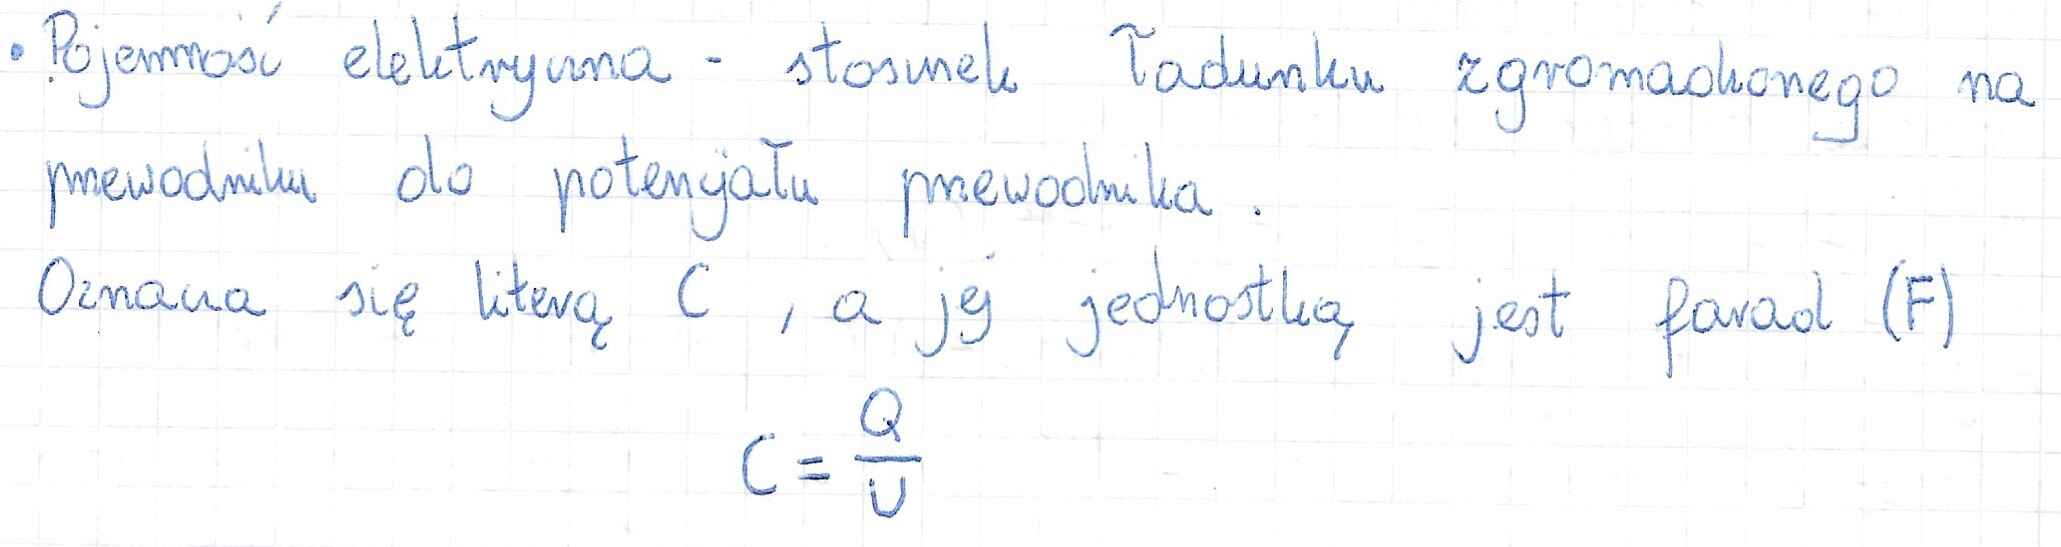 • Pojemność elektryczna - stosunek ładunku zgromadzonego na
przewodniku do potencjału przewodnika.
Oznacza się literą C, a jej jednostką jest farad (F)
C = Q/U